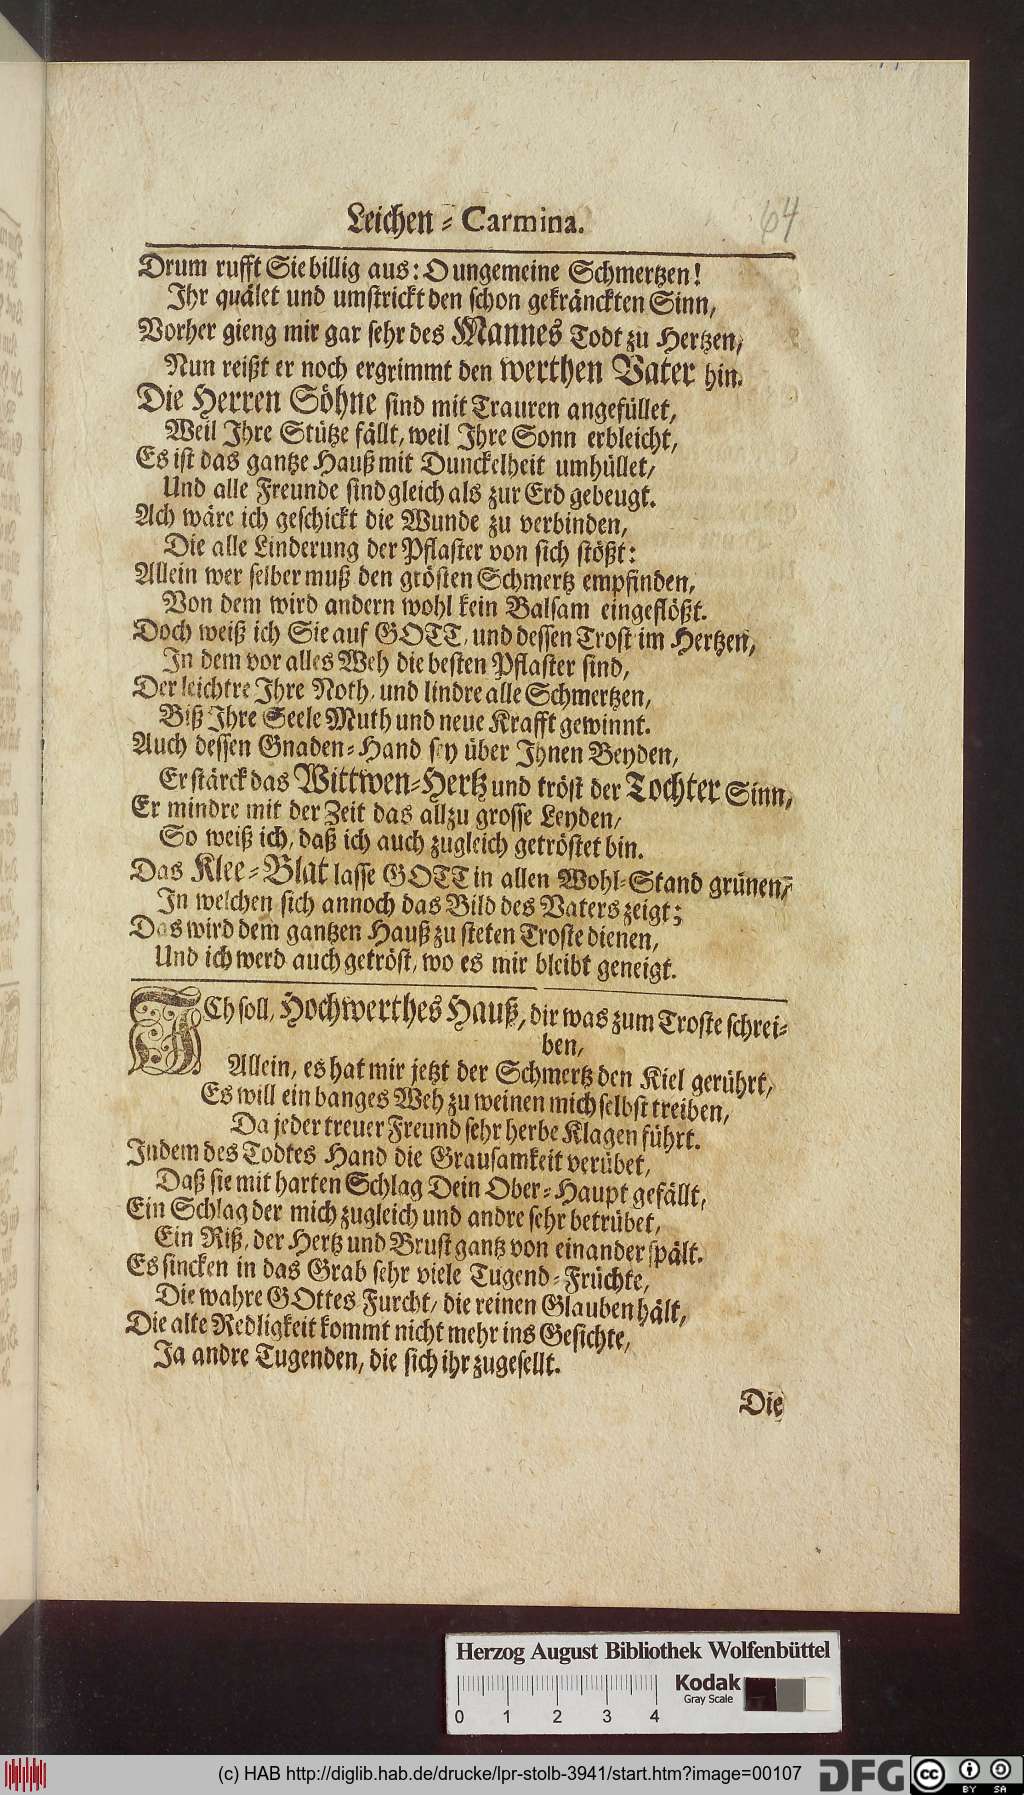 Leichen-Carmina.
64
Drum rufft Sie billig aus: O ungemeine Schmertzen!
Ihr quälet und umstrickt den schon gekränckten Sinn,
Vorher gieng mir gar sehr des Mannes Todt zu Hertzen,
Nun reißt er noch ergrimmt den werthen Vater hin.
Die Herren Söhne sind mit Trauren angefüllet,
Weil Ihre Stütze fällt, weil Ihre Sonn erbleicht,
Es ist das gantze Hauß mit Dunckelheit umhüllet,
Und alle Freunde sind gleich als zur Erd gebeugt.
Ach wäre ich geschickt die Wunde zu verbinden,
Die alle Linderung der Pflaster von sich stößt:
Allein wer selber muß den grösten Schmertz empfinden,
Von dem wird andern wohl kein Balsam eingeflößt.
Doch weiß ich Sie auf GOTT, und dessen Trost im Hertzen,
In dem vor alles Weh die besten Pflaster sind,
Der leichtre Ihre Noth, und lindre alle Schmertzen,
Biß Ihre Seele Muth und neue Krafft gewinnt.
Auch dessen Gnaden-Hand sey über Ihnen Beyden,
Er stärck das Wittwen-Hertz und tröst der Tochter Sinn,
Er mindre mit der Zeit das allzu grosse Leyden,
So weiß ich, daß ich auch zugleich getröstet bin.
Das Klee-Blat lasse GOTT in allen Wohl-Stand grünen,
In welchen sich annoch das Bild des Vaters zeigt;
Das wird dem gantzen Hauß zu steten Troste dienen,
Und ich werd auch getröst, wo es mir bleibt geneigt.
ICh soll, Hochwerthes Hauß, dir was zum Troste schrei-
ben,
Allein, es hat mir jetzt der Schmertz den Kiel gerührt,
Es will ein banges Weh zu weinen mich selbst treiben,
Da jeder treuer Freund sehr herbe Klagen führt.
Indem des Todtes Hand die Grausamkeit verübet,
Daß sie mit harten Schlag Dein Ober-Haupt gefällt,
Ein Schlag der mich zugleich und andre sehr betrübet,
Ein Riß, der Hertz und Brust gantz von einander spält.
Es sincken in das Grab sehr viele Tugend-Früchte,
Die wahre GOttes Furcht, die reinen Glauben hält,
Die alte Redligkeit kommt nicht mehr ins Gesichte,
Ja andre Tugenden, die sich ihr zugesellt.
Die
Herzog August Bibliothek Wolfenbüttel
Kodak
Gray Scale
0 1 2 3 4
(c) HAB http://diglib.hab.de/drucke/lpr-stolb-3941/start.htm?image=00107
DFG
cc BY SA